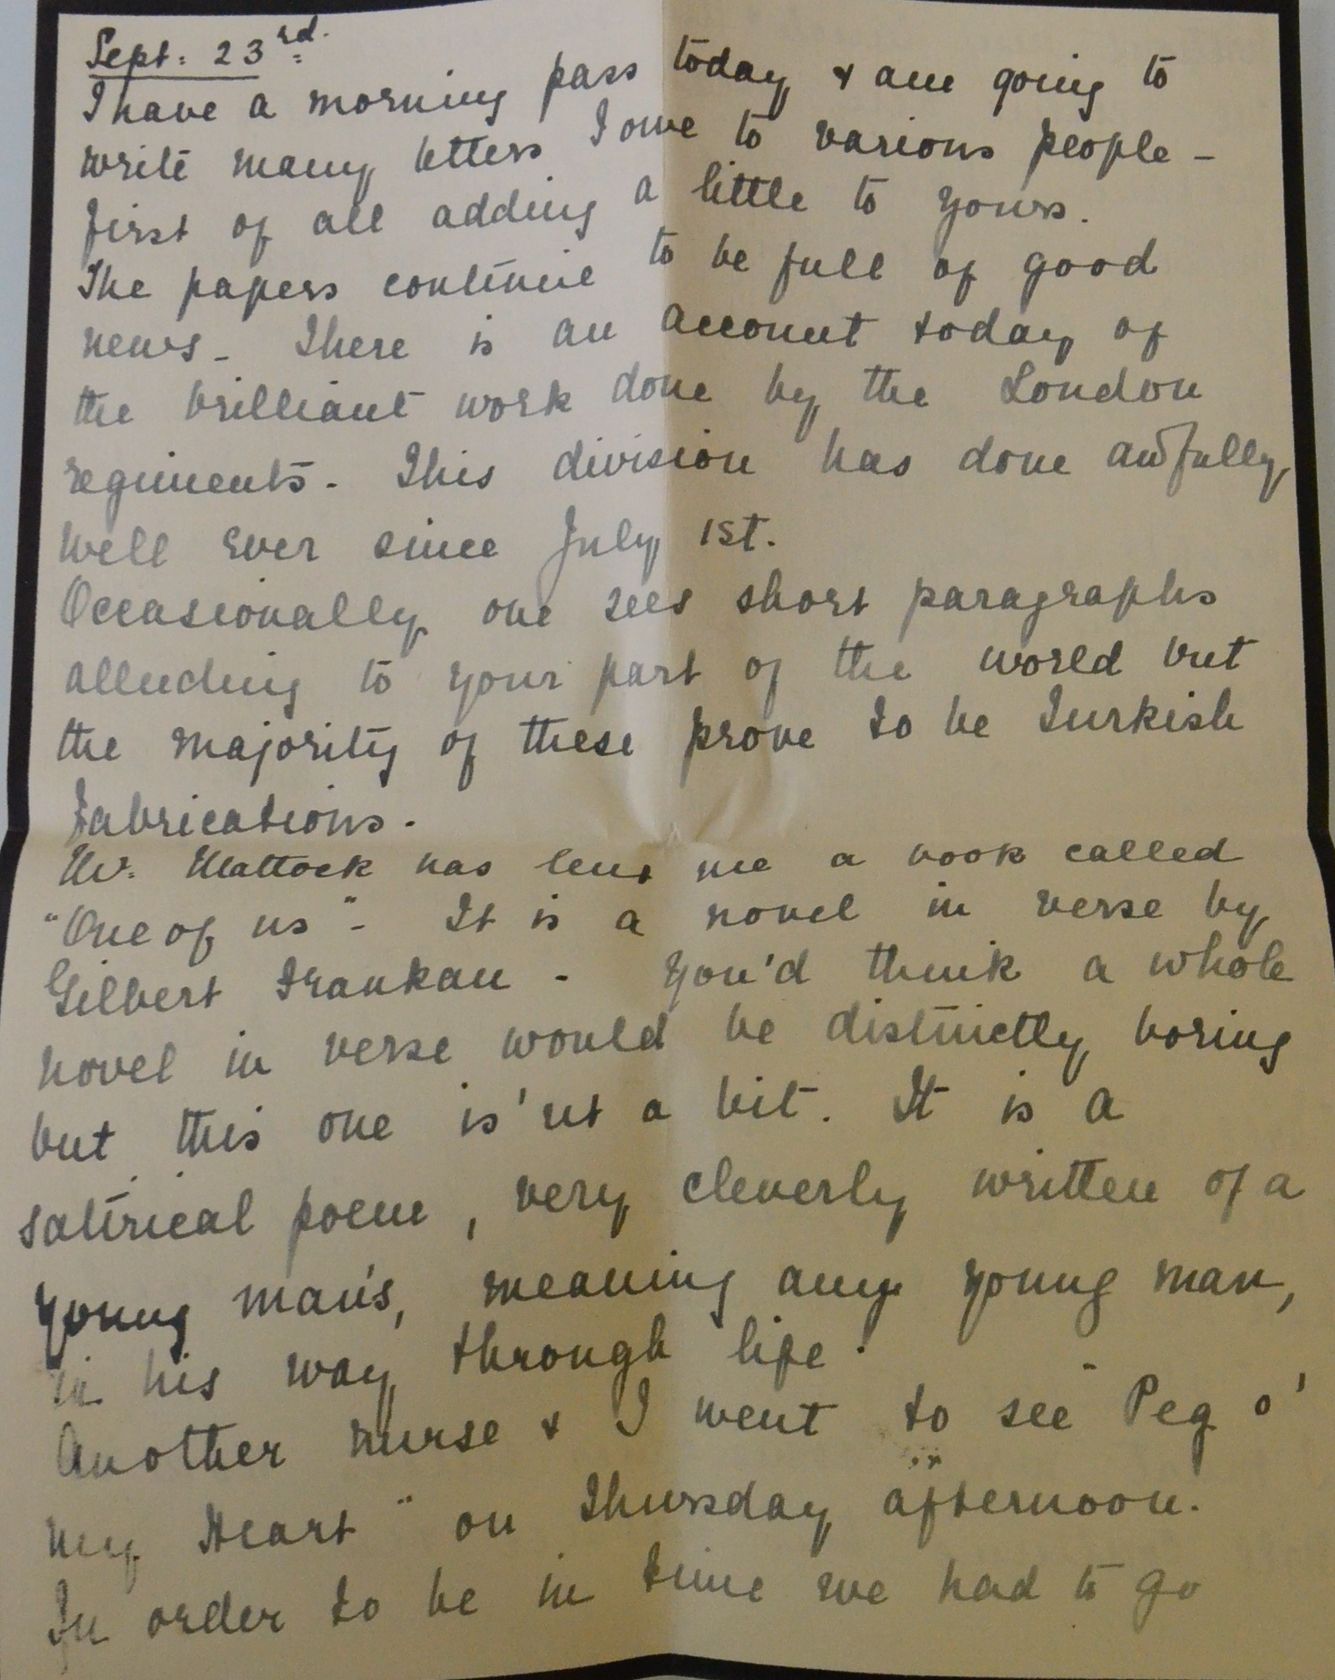 Sept: 23rd.
I have a morning pass today & am going to
write many letters I owe to various people –
first of all adding a little to yours.
The papers continue to be full of good
news – There is an account today of
the brilliant work done by the London
regiments – This division has done awfully
well ever since July 1st.
Occasionally one sees short paragraphs
alluding to your part of the world but
the majority of these prove to be Turkish
fabrications –
Mr. Mattock has lent me a book called
"One of us" – It is a novel in verse by
Gilbert Frankau – You'd think a whole
novel in verse would be distinctly boring
but this one is'nt a bit. It is a
satirical poem, very cleverly written of a
young man's, meaning any young man,
in his way through life.
Another nurse & I went to see "Peg o'
my Heart" on Thursday afternoon.
In order to be in time we had to go